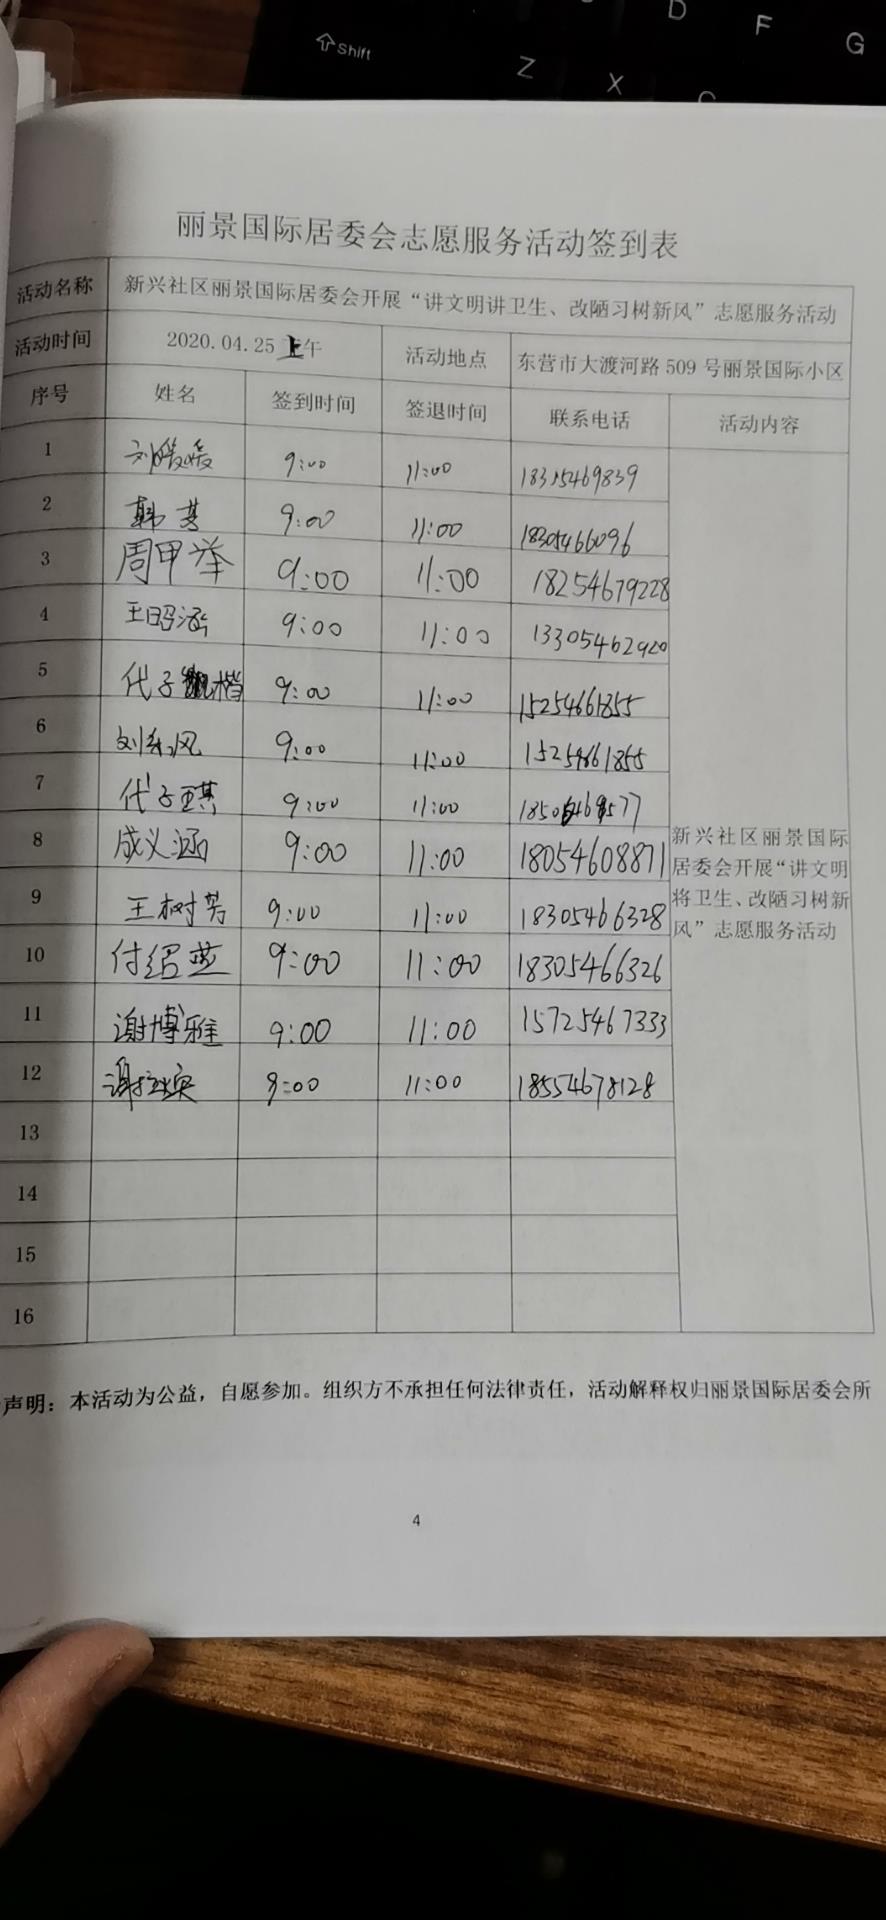 Shift
D
F
G
Z
X
C
丽景国际居委会志愿服务活动签到表
活动名称 新兴社区丽景国际居委会开展“讲文明讲卫生、改陋习树新风”志愿服务活动
活动时间 2020.04.25上午 活动地点 东营市大渡河路509号丽景国际小区
序号 姓名 签到时间 签退时间 联系电话 活动内容
1 刘媛媛 9:00 11:00 18315469839
2 韩芳 9:00 11:00 18305466096
3 周甲举 9:00 11:00 18254679228
4 王昭涵 9:00 11:00 13305462920
5 代子楷 9:00 11:00 15254661855
6 刘东风 9:00 11:00 15254661855
7 代子琪 9:00 11:00
8 成义涵 9:00 11:00 18054608871
9 王树芳 9:00 11:00 18305466328
10 付绍燕 9:00 11:00 18305466326
11 谢博雅 9:00 11:00 15725467333
12 9:00 11:00 18554678128
新兴社区丽景国际
居委会开展“讲文明
将卫生、改陋习树新
风”志愿服务活动
13
14
15
16
声明：本活动为公益，自愿参加。组织方不承担任何法律责任，活动解释权归丽景国际居委会所
4